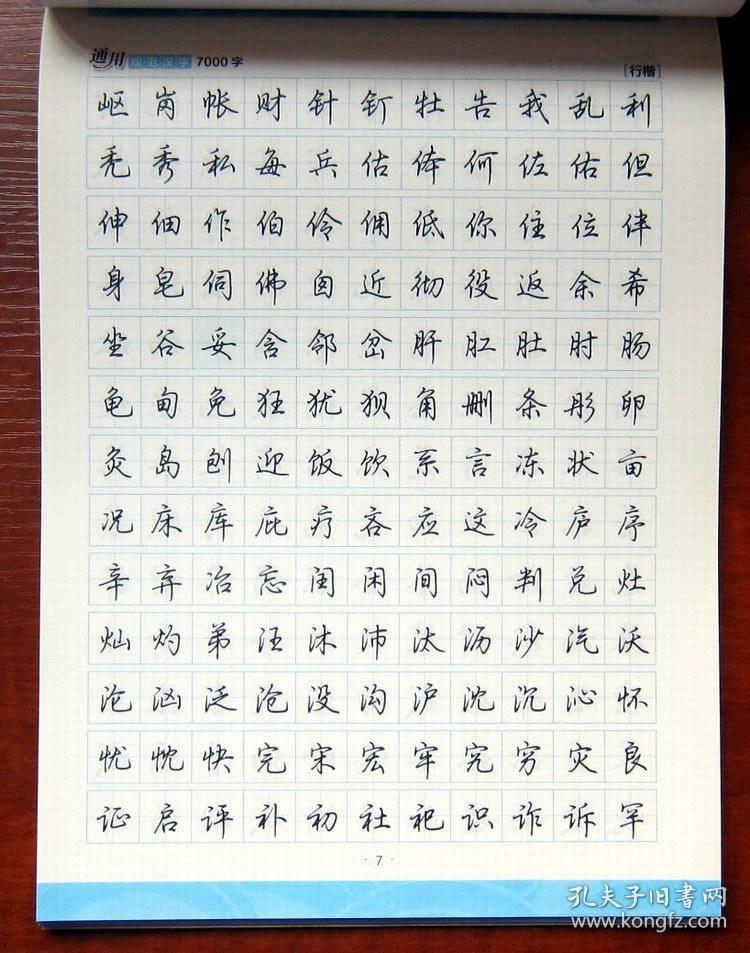 通用规范汉字7000字 [行楷]
岖岗帐财针钉牡告我乱利
秃秀私每兵估体何佐佑但
伸佃作伯伶佣低你住位伴
身皂伺佛囱近彻役返余希
坐谷妥含邻岔肝肛肚肘肠
龟甸免狂犹狈角删条彤卵
灸岛刨迎饭饮系言冻状亩
况床库庇疗吝应这冷庐序
辛弃冶忘闰闲间闷判兑灶
灿灼弟汪沐沛汰沥沙汽沃
沦汹泛沧没沟沪沈沉沁怀
忧忱快完宋宏牢究穷灾良
证启评补初社祀识诈诉罕
·7·
孔夫子旧书网
www.kongfz.com